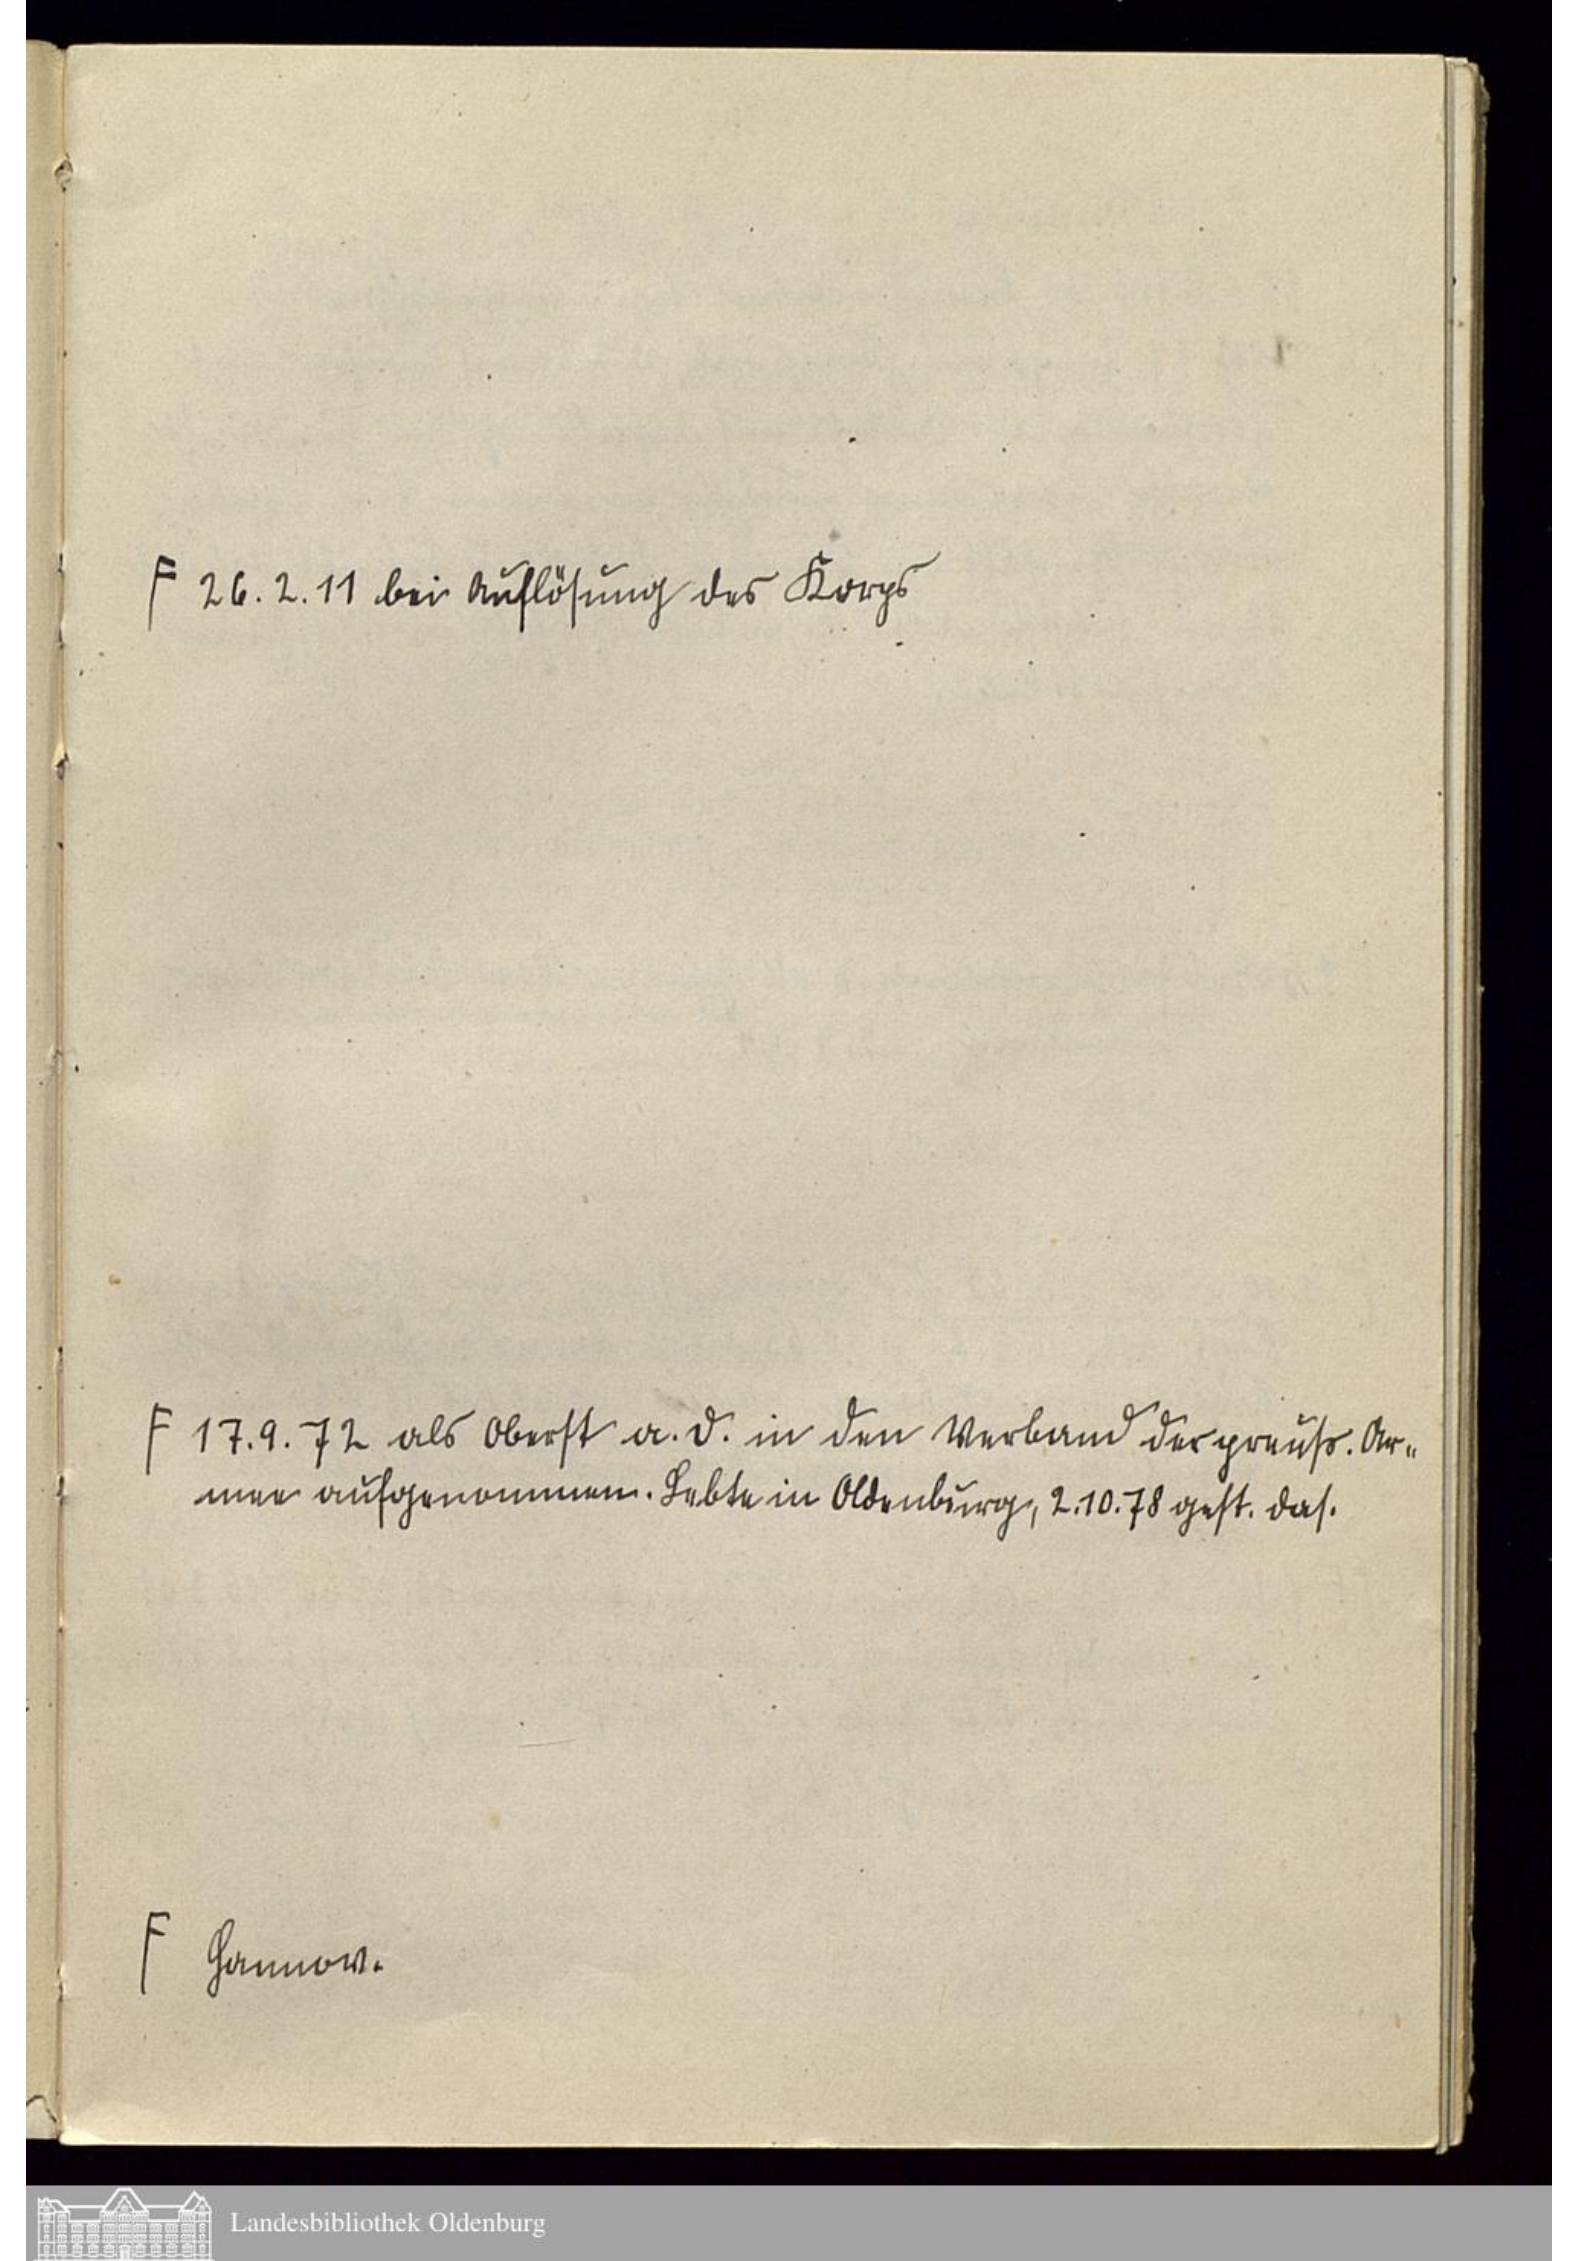 F 26.2.11 bei Auflösung des Korps
F 17.9.72 als Oberst a. D. in den Verband der preuß. Ar-
mee aufgenommen. Lebte in Oldenburg, 2.10.78 gest. das.
F Hannov.
Landesbibliothek Oldenburg